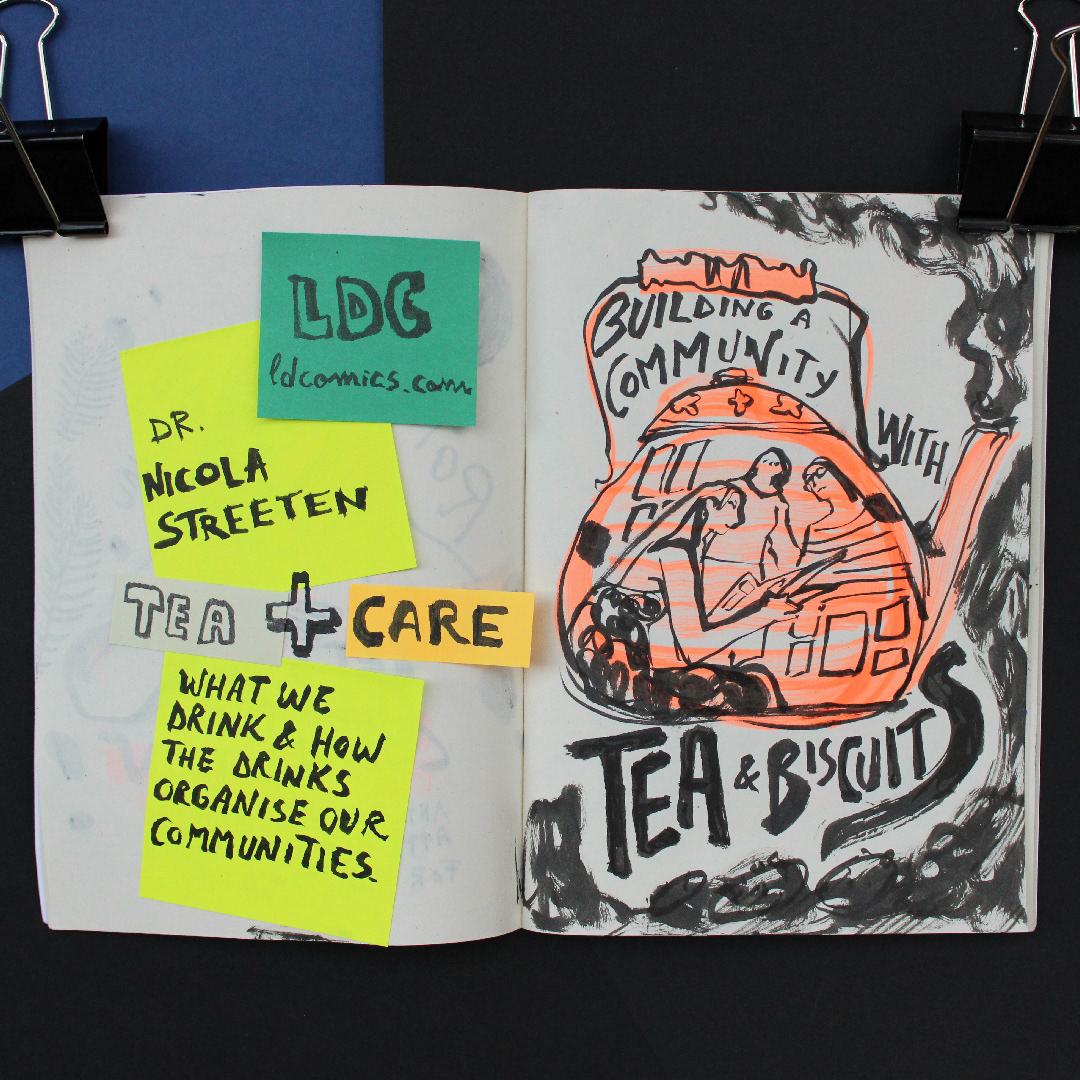 LDC
ldcomics.com
DR.
NICOLA
STREETEN
TEA + CARE
WHAT WE
DRINK & HOW
THE DRINKS
ORGANISE OUR
COMMUNITIES.
BUILDING A
COMMUNITY
WITH
TEA & BISCUITS